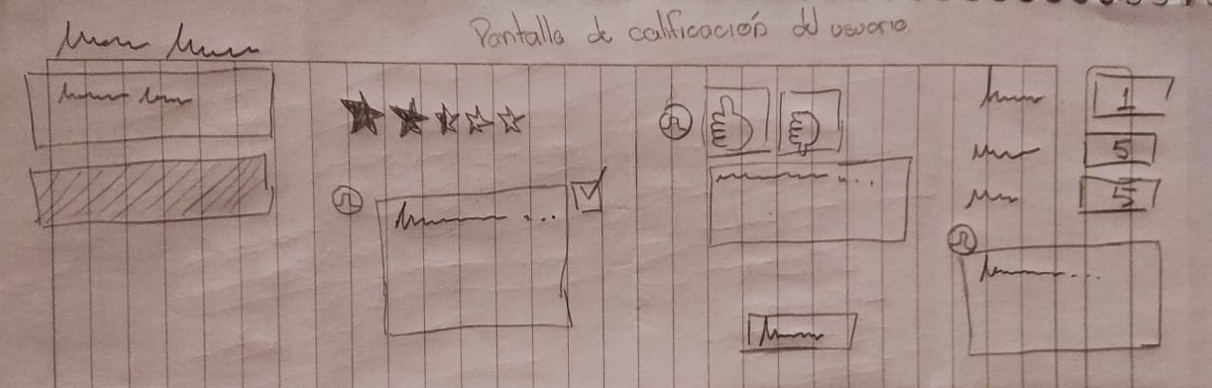 Pantalla de calificación del usuario.
1
5
5